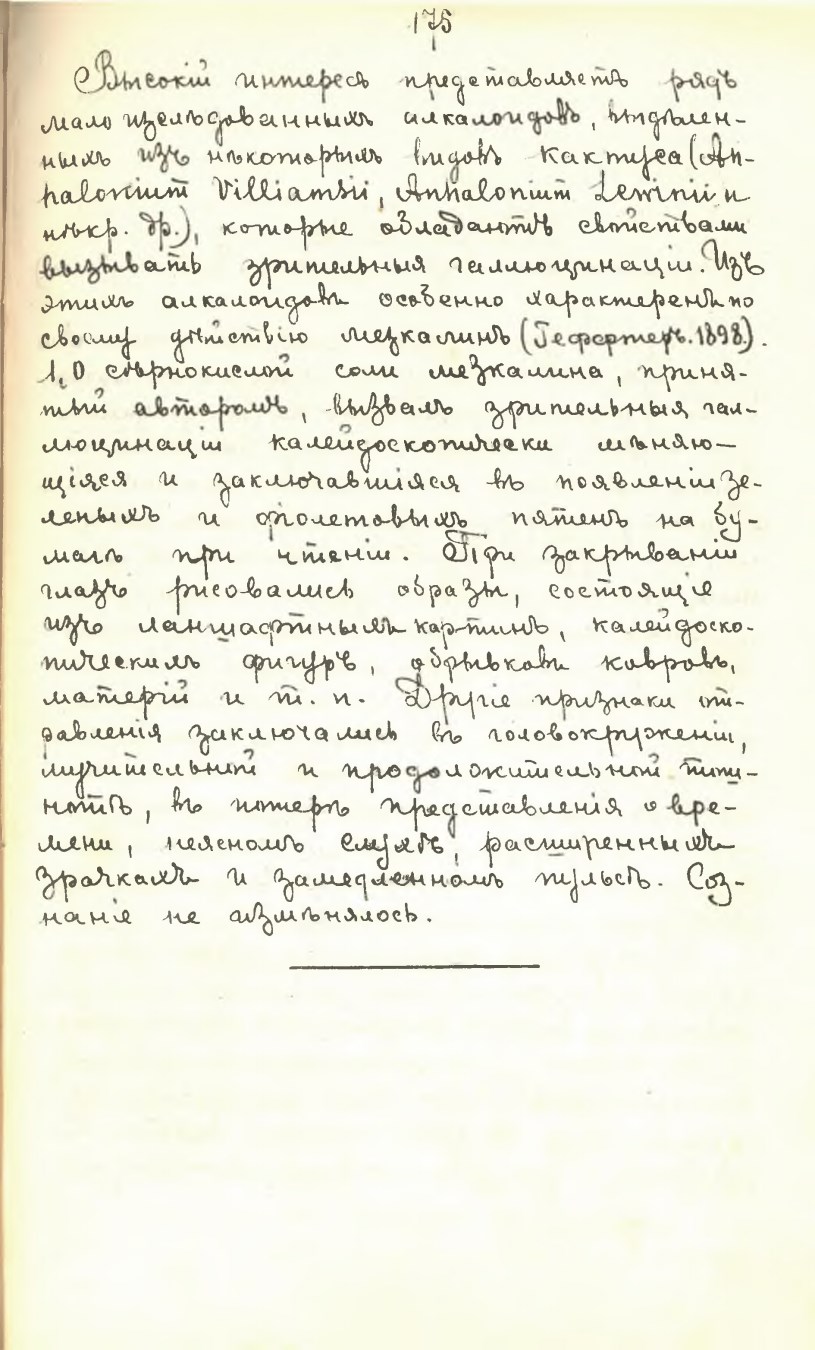 175
Высокій интересъ представляетъ рядъ
мало изслѣдованныхъ алкалоидовъ, выдѣлен-
ныхъ изъ нѣкоторыхъ видовъ кактуса (An-
halonium Villiamsii, Anhalonium Lewinii и
нѣкр. др.), которые обладаютъ свойствами
вызывать зрительныя галлюцинаціи. Изъ
этихъ алкалоидовъ особенно характеренъ по
своему дѣйствію мезкалинъ (Геффтеръ. 1898.).
1,0 сѣрнокислой соли мезкалина, приня-
тый авторомъ, вызвалъ зрительныя гал-
люцинаціи калейдоскопически мѣняю-
щіяся и заключавшіяся въ появленіи зе-
леныхъ и фіолетовыхъ пятенъ на бу-
магѣ при чтеніи. При закрываніи
глазъ рисовались образы, состоящіе
изъ ланшафтныхъ картинъ, калейдоско-
пическихъ фигуръ, обрывковъ ковровъ,
матерій и т. п. Другіе признаки от-
равленія заключались въ головокруженіи,
мучительной и продолжительной тош-
нотѣ, въ потерѣ представленія о вре-
мени, неясномъ слухѣ, расширенныхъ
зрачкахъ и замедленномъ пульсѣ. Соз-
наніе не измѣнялось.